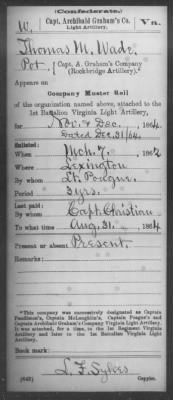 (Confederate.)
W. Capt. Archibald Graham's Co. Va.
Light Artillery.
Thomas M. Wade
Pvt. Capt. A. Graham's Company
(Rockbridge Artillery).*
Appears on
Company Muster Roll
of the organization named above, attached to the
1st Battalion Virginia Light Artillery,
for Nov. & Dec., 1864.
Dated Dec. 31/64.
Enlisted:
When Mch. 7, 1862
Where Lexington
By whom Lt. Poague
Period 3 yrs.
Last paid:
By whom Capt. Christian
To what time Aug. 31, 1864
Present or absent Present.
Remarks:
*This company was successively designated as Captain
Pendleton's, Captain McLaughlin's, Captain Poague's and
Captain Archibald Graham's Company Virginia Light Artillery.
It was attached, for a time, to the 1st Regiment Virginia
Artillery and later to the 1st Battalion Virginia Light
Artillery.
Book mark:
L. F. Sykes
(642) Copyist.